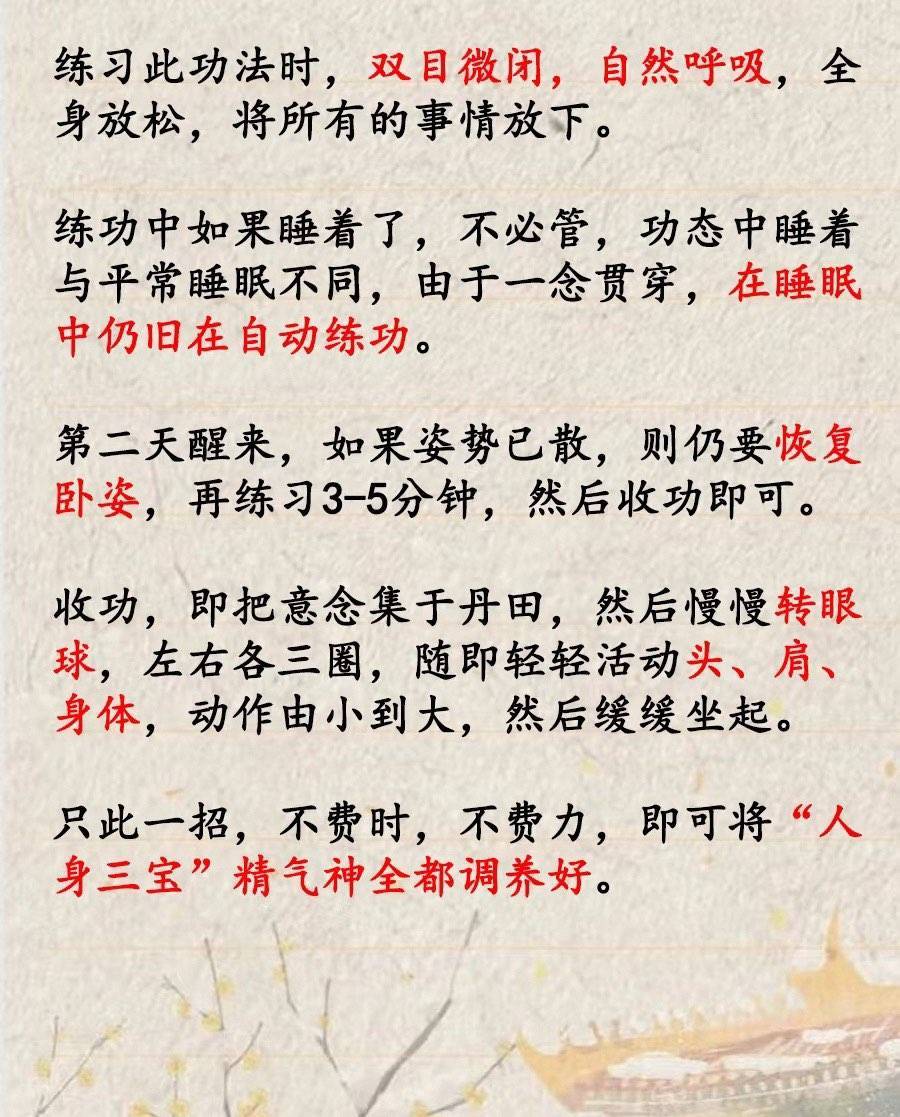 练习此功法时，双目微闭，自然呼吸，全
身放松，将所有的事情放下。
练功中如果睡着了，不必管，功态中睡着
与平常睡眠不同，由于一念贯穿，在睡眠
中仍旧在自动练功。
第二天醒来，如果姿势已散，则仍要恢复
卧姿，再练习3-5分钟，然后收功即可。
收功，即把意念集于丹田，然后慢慢转眼
球，左右各三圈，随即轻轻活动头、肩、
身体，动作由小到大，然后缓缓坐起。
只此一招，不费时，不费力，即可将“人
身三宝”精气神全都调养好。